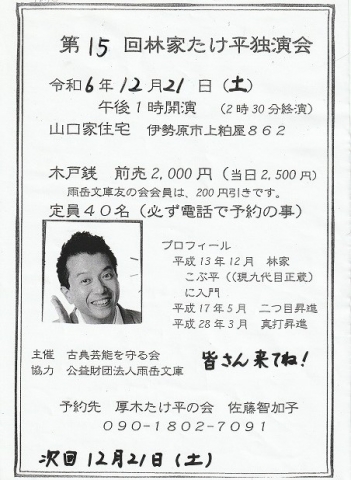 第15回林家たけ平独演会
令和6年12月21日(土)
午後1時開演 (2時30分終演)
山口家住宅 伊勢原市上粕屋862
木戸銭 前売2,000円(当日2,500円)
雨岳文庫友の会会員は、200円引きです。
定員40名(必ず電話で予約の事)
プロフィール
平成13年12月 林家
こぶ平((現九代目正蔵)
に入門
平成17年5月 二つ目昇進
平成28年3月 真打昇進
主催 古典芸能を守る会
協力 公益財団法人雨岳文庫
皆さん来てね!
予約先 厚木たけ平の会 佐藤智加子
090-1802-7091
次回12月21日(土)